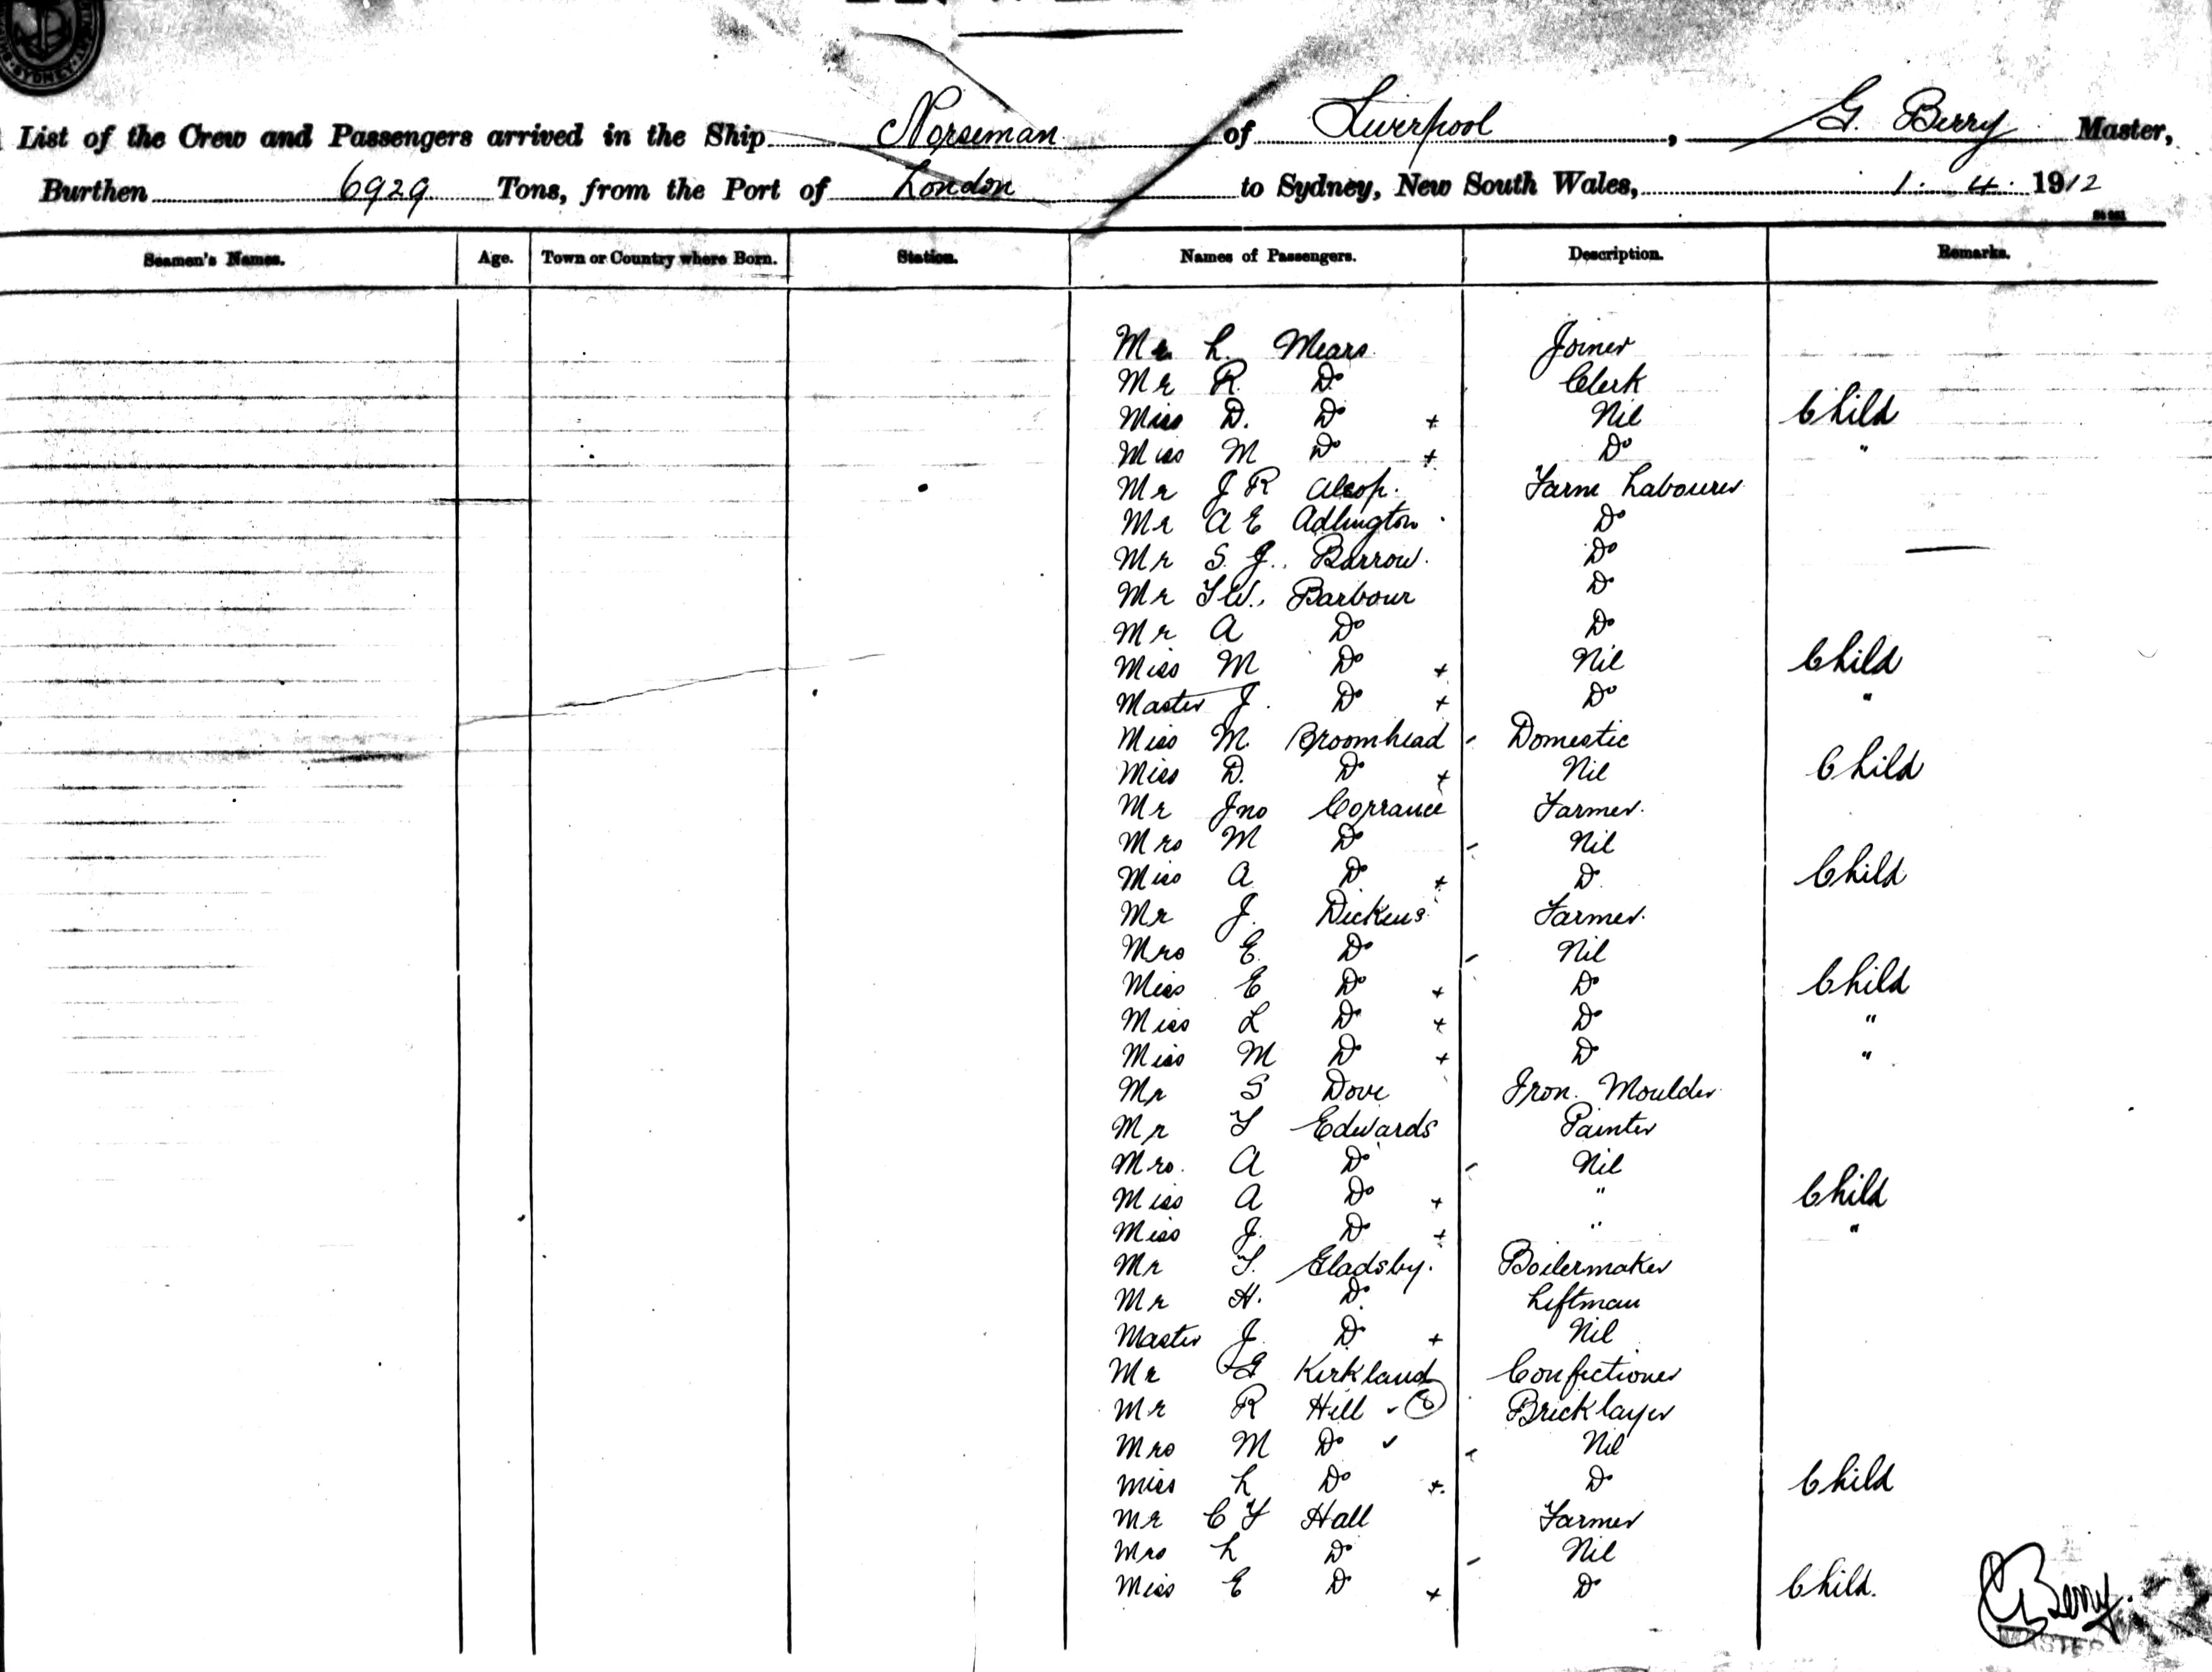 SYDNEY
List of the Crew and Passengers arrived in the Ship Norseman of Liverpool, G. Berry Master,
Burthen 6929 Tons, from the Port of London to Sydney, New South Wales, 1. 4. 1912
Seamen's Names. Age. Town or Country where Born. Station. Names of Passengers. Description. Remarks.
Mr L. Mears Joiner
Mr R. Do Clerk
Miss D. Do + Nil Child
Miss M Do + Do "
Mr J R Alsop. Farm Labourer
Mr A E Adlington Do
Mr S. J. Barrow. Do
Mr F W. Barbour Do
Mr A Do Do
Miss M Do + Nil Child
Master J. Do + Do "
Miss M. Broomhead Domestic
Miss D. Do + Nil Child
Mr Jno Corrance Farmer.
Mrs M Do Nil
Miss A Do + Do Child
Mr J. Dickens Farmer.
Mrs E. Do Nil
Miss E Do + Do Child
Miss L Do + Do "
Miss M Do + Do "
Mr S Dove Iron Moulder
Mr F Edwards Painter
Mrs. A Do Nil
Miss A Do + " Child
Miss J. Do + " "
Mr F. Gladsby. Boilermaker
Mr H. Do Liftman
Master J. Do + Nil
Mr G Kirkland Confectioner
Mr R Hill ✓ 8 Bricklayer
Mrs M Do ✓ Nil
Miss L Do + Do Child
Mr C F Hall Farmer
Mrs L Do Nil
Miss E Do + Do Child.
G Berry.
MASTER